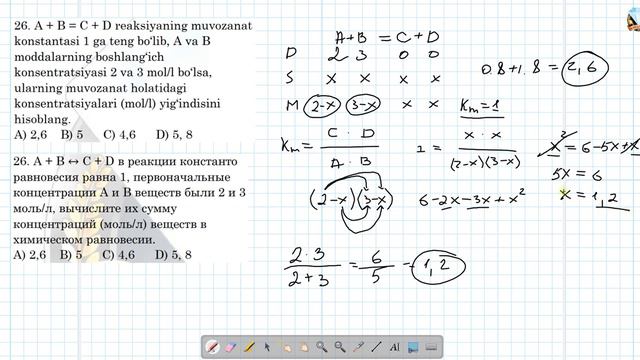 26. A + B = C + D reaksiyaning muvozanat
konstantasi 1 ga teng bo'lib, A va B
moddalarning boshlang'ich
konsentratsiyasi 2 va 3 mol/l bo'lsa,
ularning muvozanat holatidagi
konsentratsiyalari (mol/l) yig'indisini
hisoblang.
A) 2,6 B) 5 C) 4,6 D) 5, 8
26. A + B ↔ C + D в реакции константо
равновесия равна 1, первоначальные
концентрации А и В веществ были 2 и 3
моль/л, вычислите их сумму
концентраций (моль/л) веществ в
химическом равновесии.
A) 2,6 B) 5 C) 4,6 D) 5, 8
A + B = C + D
D 2 3 0 0
S x x x x
M 2-x 3-x x x
Km = C · D / A · B
Km = 1
1 = x · x / (2-x)(3-x)
(2-x)(3-x) 6-2x-3x+x²
2·3 / 2+3 = 6/5 = 1,2
0.8+1.8 = 2,6
x² = 6-5x+x²
5x = 6
x = 1,2